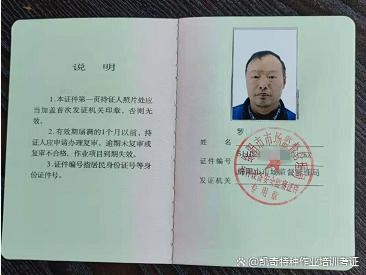 说 明
1.本证件第一页持证人照片处应
当加盖首次发证机关印章，否则无
效。
2.有效期届满的1个月以前，持
证人应申请办理复审。逾期未复审或
复审不合格，作业项目到期失效。
3.证件编号指居民身份证号等身
份证件号。
姓 名
证件编号
发证机关
专用章
头条 @凯奇特种作业培训考证